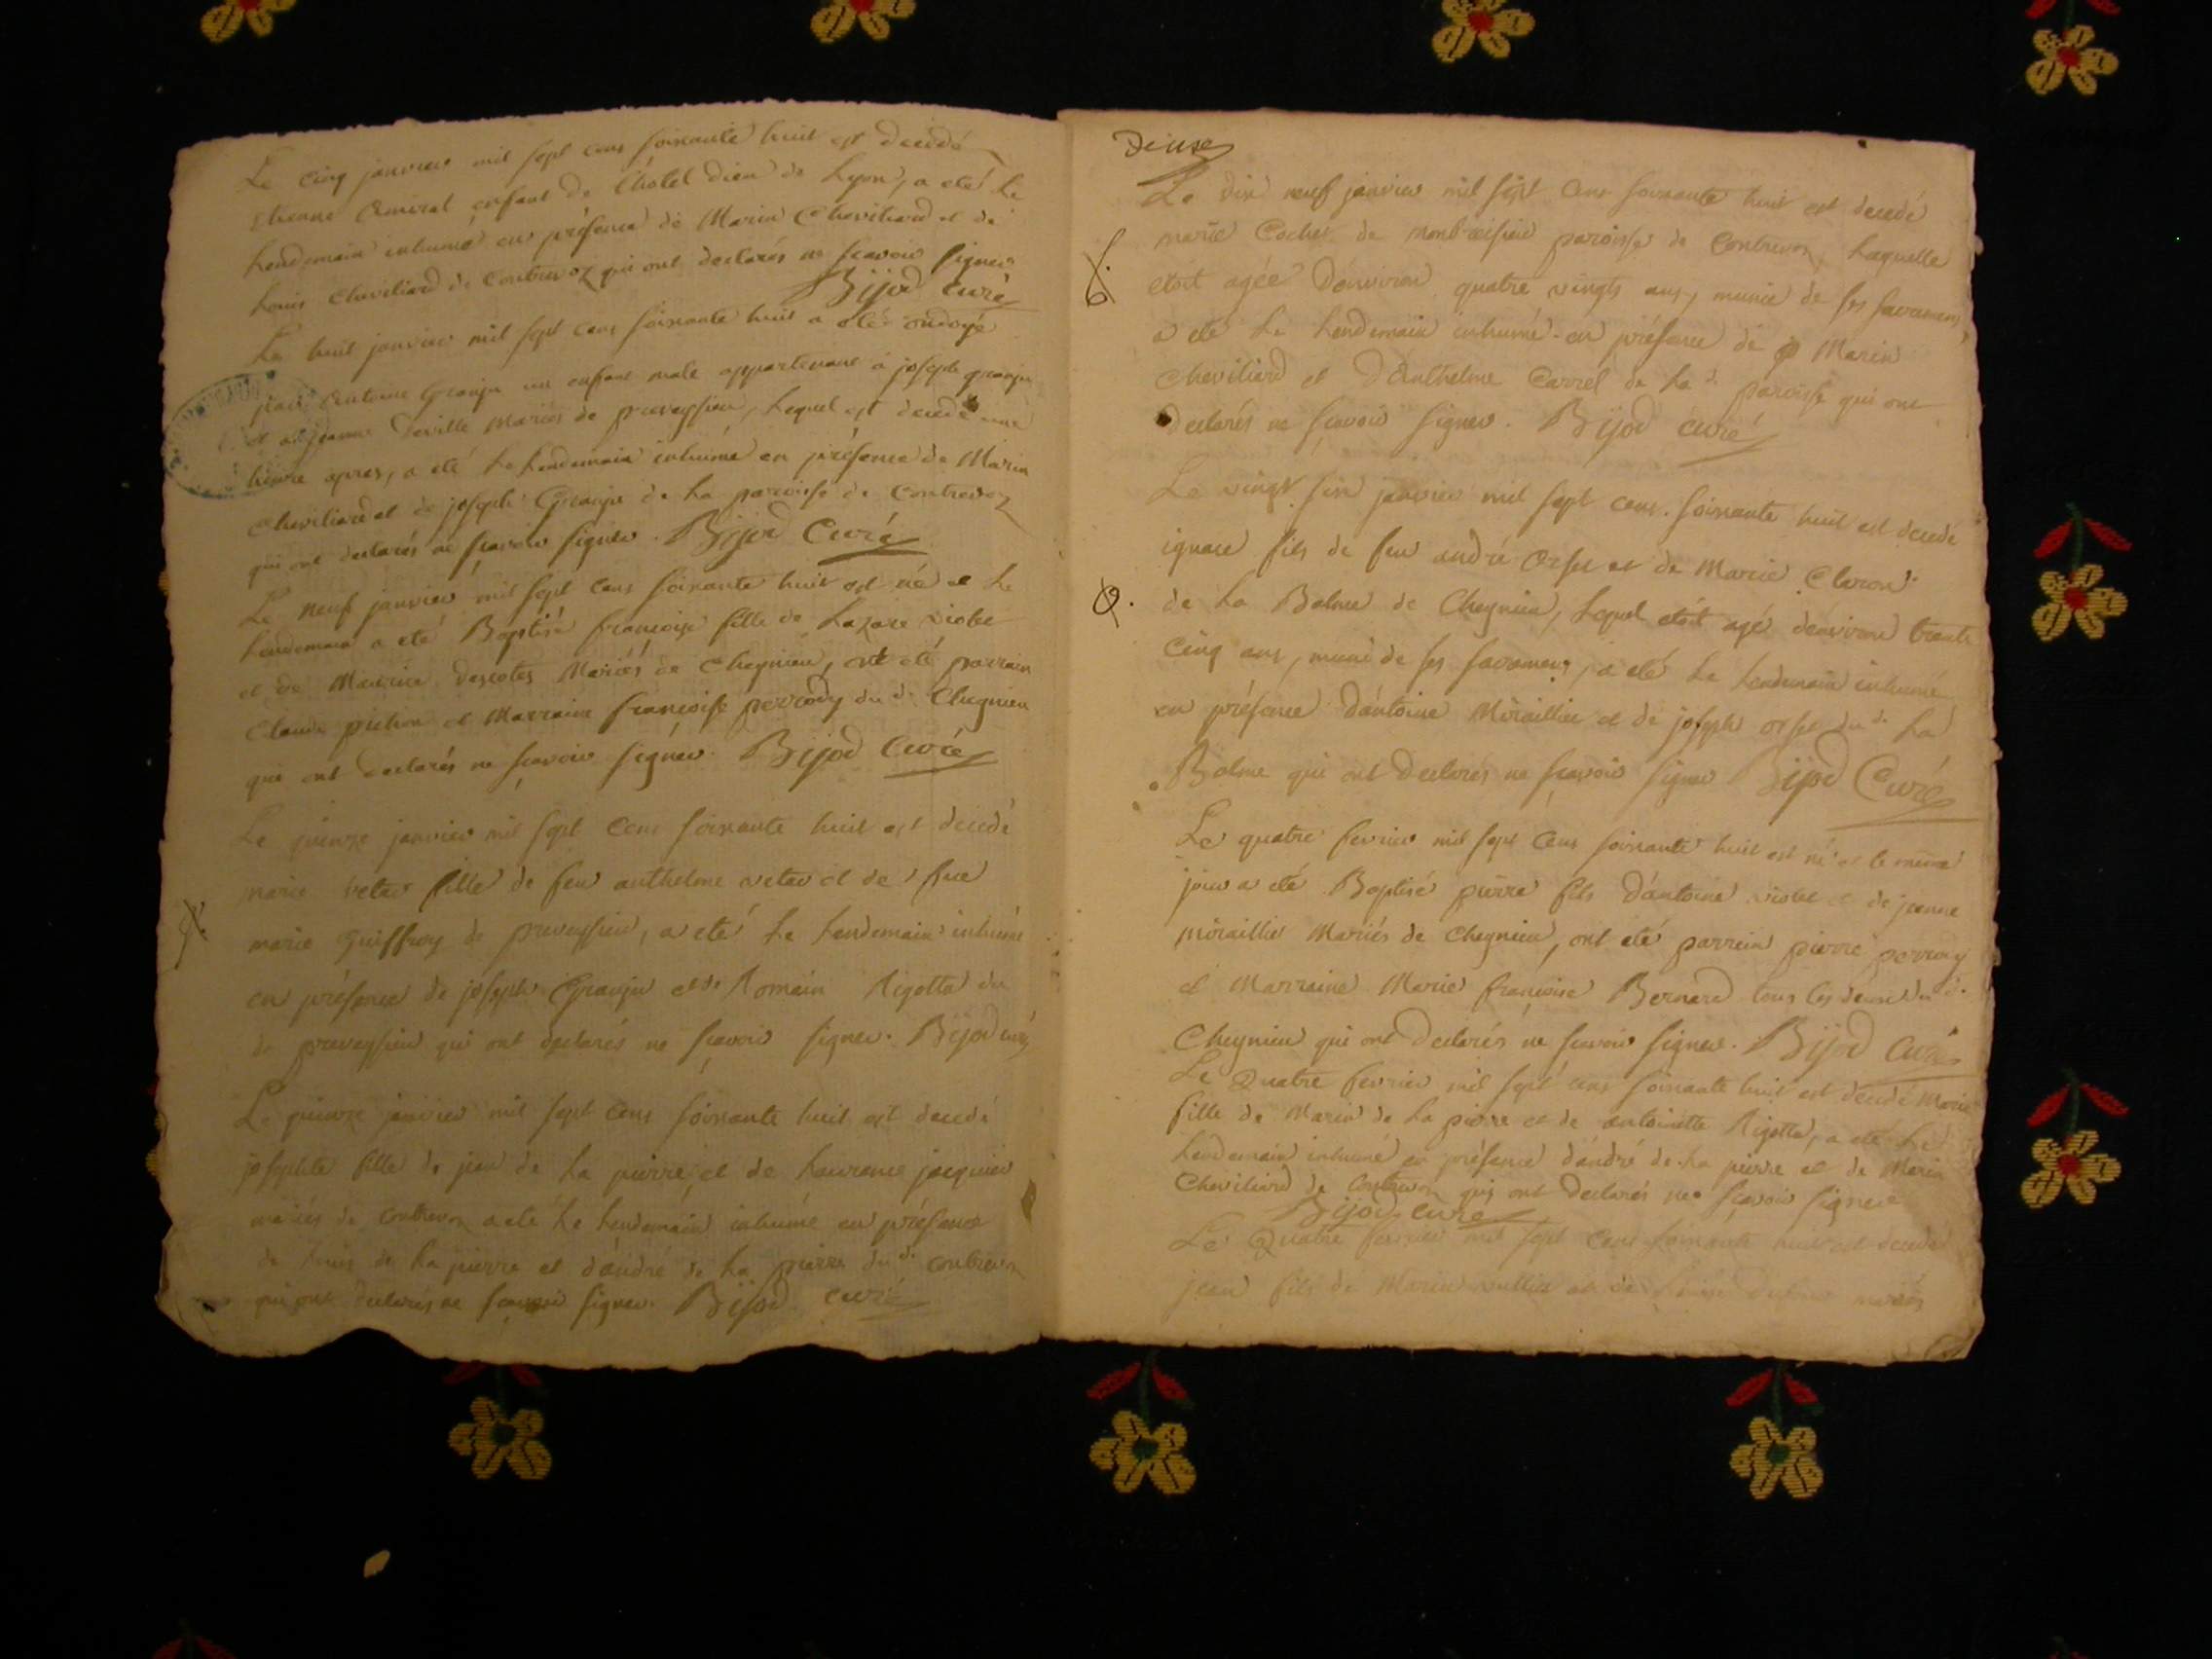 Le cinq janvier mil sept cens soixante huit est decedé
Etienne Amiral enfant de l'hotel dieu de Lyon, a eté le
lendemain inhumé en présence de Marin Cheviliard et de
Louis Cheviliard de Contrevoz qui ont declarés ne scavoir signer
Bijod Curé
Le huit janvier mil sept cens soixante huit a eté ondoyé
jean Antoine Granju un enfant male appartenant a joseph granju
et a jeanne Deville Mariés de preveyssieu, lequel est decedé une
heure apres, a eté le lendemain inhumé en présence de Marin
Cheviliard et de joseph Granju de la paroisse de Contrevoz
qui ont declarés ne scavoir signer. Bijod Curé
Le neuf janvier mil sept cens soixante huit est né et le
lendemain a eté Baptisé françoise fille de Lazare violet
et de Maurice Descotes Mariés de Chegnieu, ont eté parrain
Claude pichon et Marraine françoise perrody du d. Chegnieu
qui ont declarés ne scavoir signer. Bijod Curé
Le quinze janvier mil sept cens soixante huit est decedé
marie vetar fille de feu anthelme vetar et de feue
marie Guiffray de preveyssieu, a eté le lendemain inhumé
en présence de joseph Granju et de Romain Rigotta du
d. preveyssieu qui ont declarés ne scavoir signer. Bijod curé
Le quinze janvier mil sept cens soixante huit est decedé
josephte fille de jean de la pierre et de Laurence jacquier
mariés de contrevoz a eté le lendemain inhumé en présence
de Louis de la pierre et d'andré de la pierre du d. contrevoz
qui ont declarés ne scavoir signer. Bijod curé
Deuse
Le dix neuf janvier mil sept cens soixante huit est decedé
marie Cochet de montbreisieu paroisse de Contrevoz, laquelle
etoit agée d'environ quatre vingts ans, munie de ses sacremens,
a eté le lendemain inhumé en présence de Marin
Cheviliard et d'Anthelme Carrel de la d. paroisse qui ont
declarés ne scavoir signer. Bijod curé
Le vingt six janvier mil sept cens soixante huit est decedé
ignace fils de feu andré Orset et de Marie Claron
de la Balme de Chegnieu, lequel etoit agé d'environ trente
cinq ans, muni de ses sacremens, a eté le lendemain inhumé
en présence d'antoine Miraillier et de joseph orset du d. la
Balme qui ont declarés ne scavoir signer Bijod Curé
Le quatre fevrier mil sept cens soixante huit est né et le même
jour a eté Baptisé pierre fils d'antoine violet et de jeanne
miraillier Mariés de Chegnieu, ont eté parrein pierre perrody
et Marraine Marie françoise Bernard tous les deux du d.
Chegnieu qui ont declarés ne scavoir signer. Bijod Curé
Le Quatre fevrier mil sept cens soixante huit est decedé Marie
fille de Marin de la pierre et de antoinette Rigotta, a eté le
lendemain inhumé en présence d'andré de la pierre et de Marin
Cheviliard de Contrevoz qui ont declarés ne scavoir signer
Bijod curé
Le Quatre fevrier mil sept cens soixante huit est decedé
jean fils de Marin vullier et de mariés